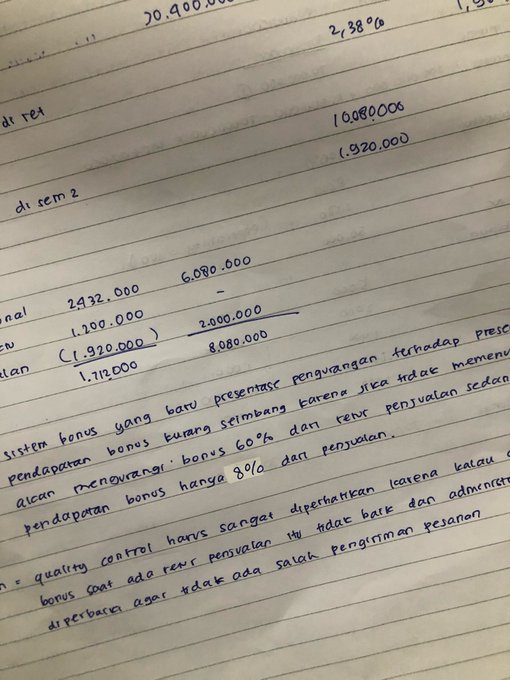 2,38%
di ret
10.080.000
1.920.000
di sem 2
2.432.000 6.080.000
1.200.000 -
(1.920.000) 2.000.000
1.712.000 8.080.000
sistem bonus yang baru presentase pengurangan terhadap
pendapatan bonus kurang seimbang karena jika tidak
akan mengurangi bonus 60% dari retur penjualan
pendapatan bonus hanya 8% dari penjualan.
= quality control harus sangat diperhatikan karena kalau
bonus saat ada retur penjualan itu tidak baik dan
diperbaiki agar tidak ada salah pengiriman pesanan